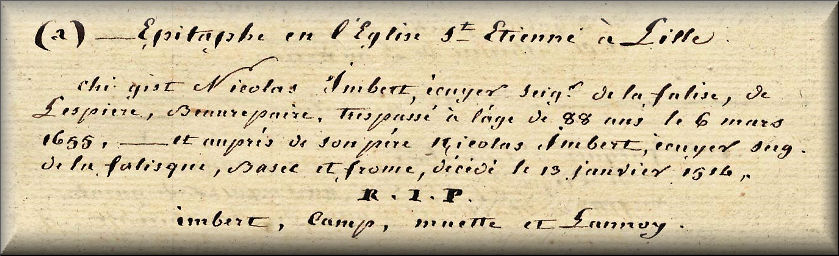 (a) — Epitaphe en l'Eglise St Etienne à Lille.
chi gist Nicolas Imbert, écuyer seigr de la falise, de
Lespiere, Beaurepaire, trespassé à l'âge de 88 ans le 6 mars
1655, — et auprés de son pére Nicolas Imbert, écuyer seig.
de la falisque, Basec et frome, décédé le 13 janvier 1516,
R. I. P.
imbert, Camp, muette et Lannoy.